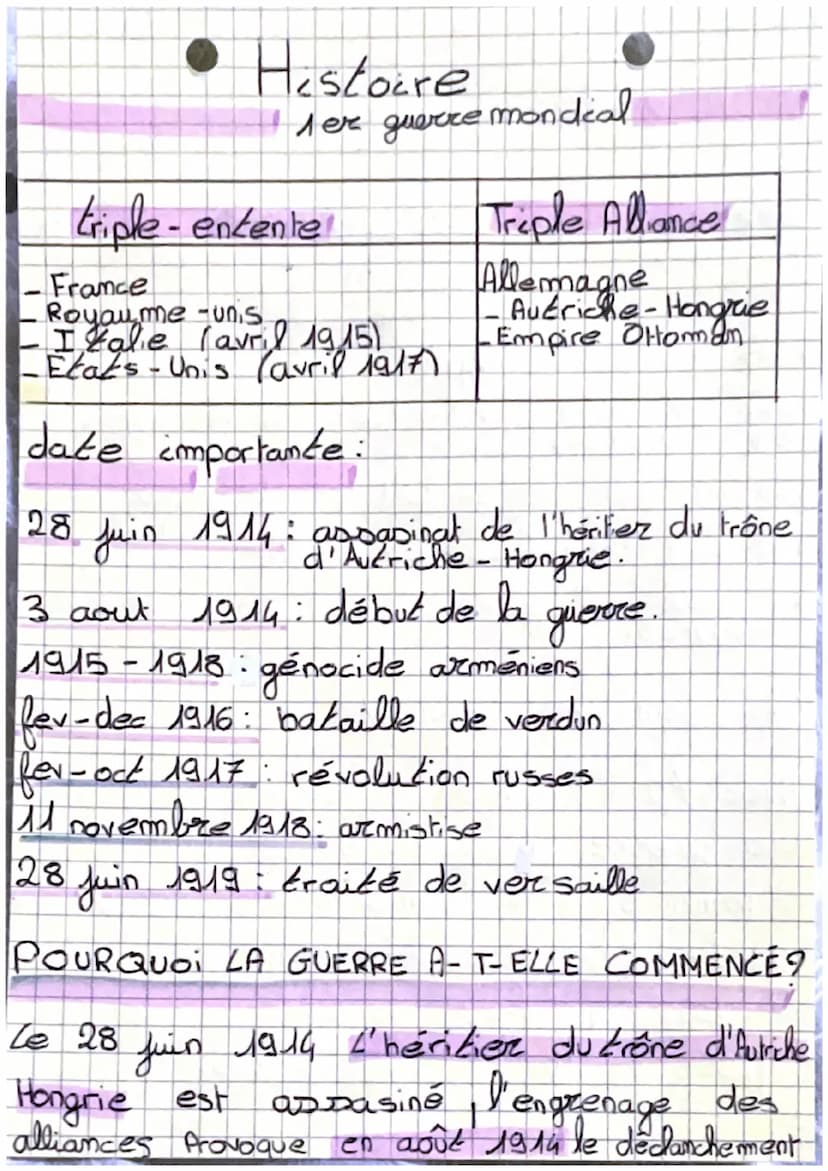 Histoire
1er guerre mondial
triple-entente
Triple Alliance
- France
- Royaume-unis
- Italie (avril 1915)
- États-Unis (avril 1917)
Allemagne
- Autriche-Hongrie
- Empire Ottoman
date importante :
28 juin 1914 : assasinat de l'héritier du trône
d'Autriche-Hongrie.
3 aout 1914 : début de la guerre.
1915-1918 : génocide arméniens
fev-dec 1916 : bataille de verdun
fev-oct 1917 : révolution russes
11 novembre 1918 : armistise
28 juin 1919 : traité de versaille
POURQUOi LA GUERRE A-T-ELLE COMMENCÉ ?
Le 28 juin 1914 L'héritier du trône d'Autriche
Hongrie est assasiné, l'engrenage des
alliances Provoque en août 1914 le déclanchement